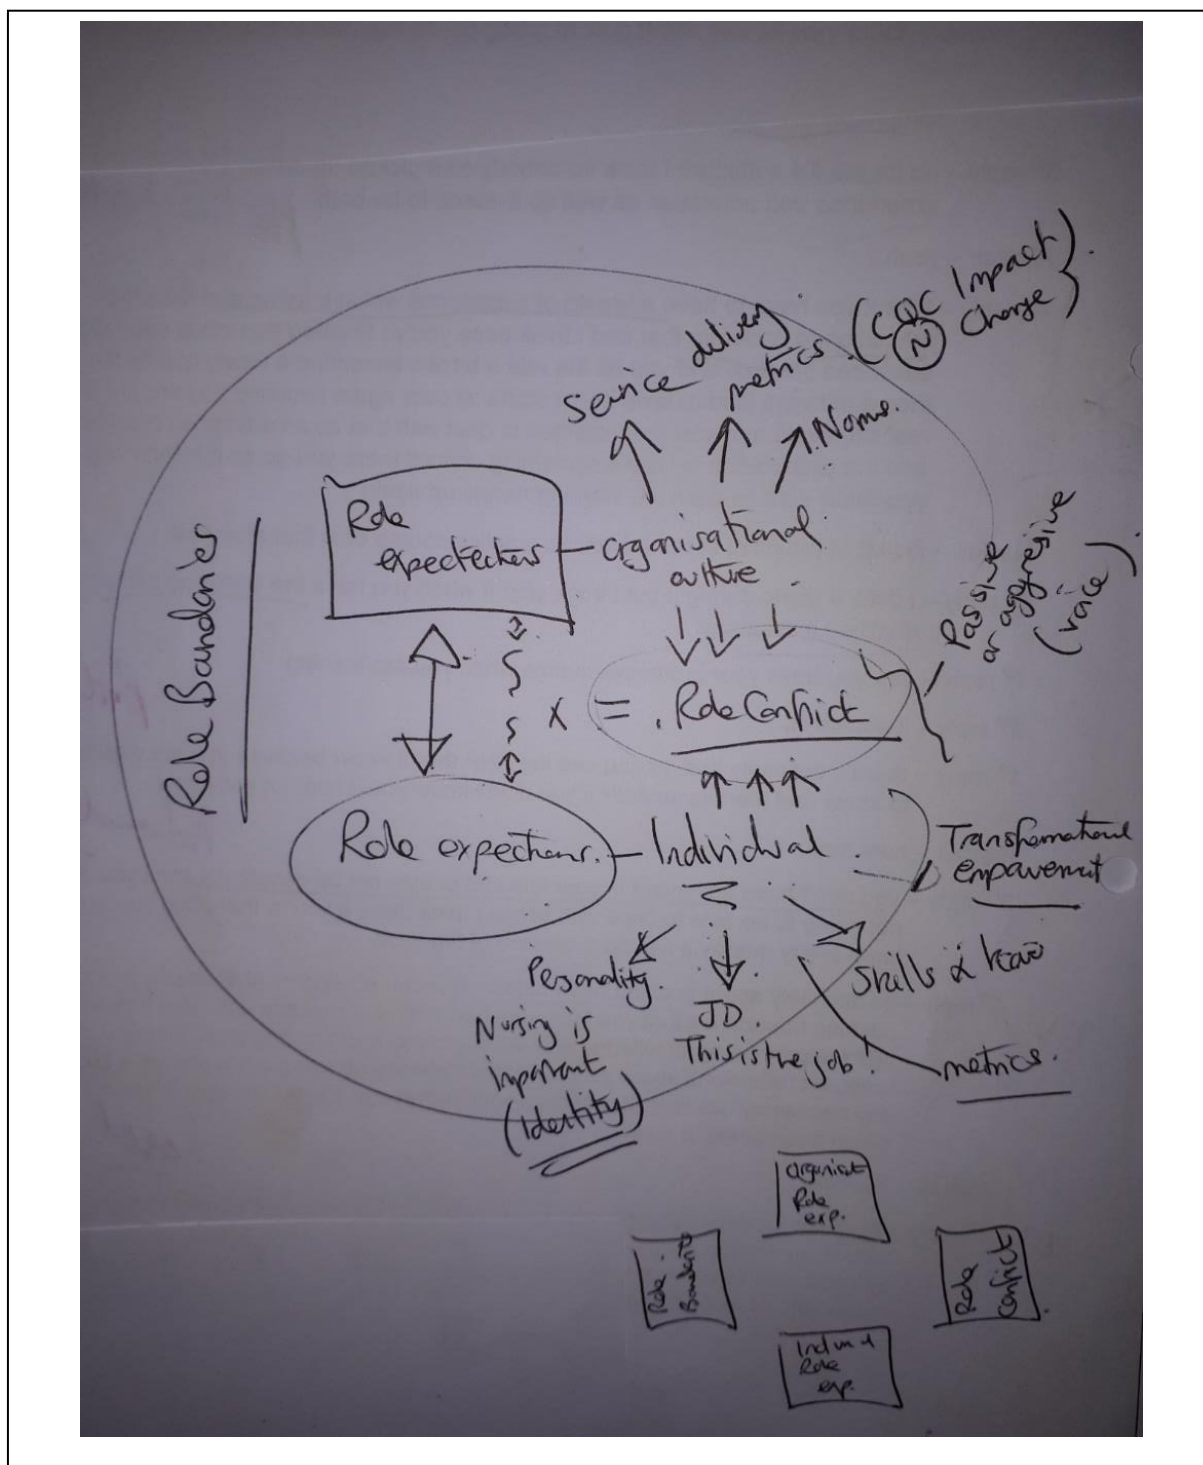 Role Bandaries
service delivery
metrics. (CQC Impact)
N Change
Norms.
Role
expectections
organisational
culture
Passive
or aggressive
(voice)
x = . Role Conflict
Role expections.
Individual.
Transformational
empowerment
Personality.
JD.
This is the job!
Skills &
metrics.
Nursing is
important
(Identity)
Organisat
Role
exp.
Role
Role
Conflict
Role
exp.